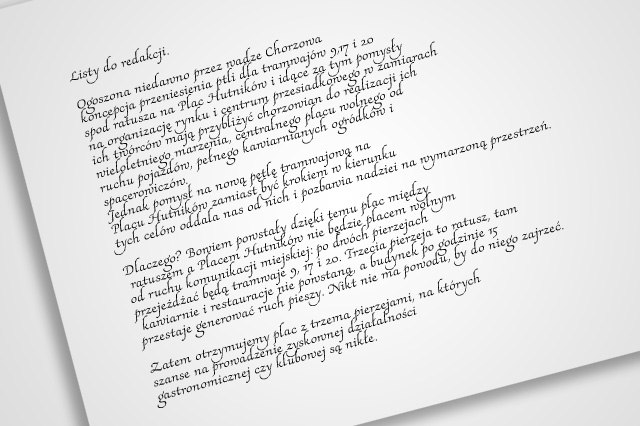 Listy do redakcji.
Ogoszona niedawno przez wadze Chorzowa
koncepcja przeniesienia ptli dla tramwajów 9,17 i 20
spod ratusza na Plac Hutników i idące za tym pomysły
na organizację rynku i centrum przesiadkowego w zamiarach
ich twórców mają przybliżyć chorzowian do realizacji ich
wieloletniego marzenia, centralnego placu wolnego od
ruchu pojazdów, pełnego kawiarnianych ogródków i
spacerowiczów.
Jednak pomysł na nową pętlę tramwajową na
Placu Hutników zamiast być krokiem w kierunku
tych celów oddala nas od nich i pozbawia nadziei na wymarzoną przestrzeń.
Dlaczego? Bowiem powstały dzięki temu plac między
ratuszem a Placem Hutników nie będzie placem wolnym
od ruchu komunikacji miejskiej: po dwóch pierzejach
przejeżdżać będą tramwaje 9, 17 i 20. Trzecia pierzeja to ratusz, tam
kawiarnie i restauracje nie powstaną, a budynek po godzinie 15
przestaje generować ruch pieszy. Nikt nie ma powodu, by do niego zajrzeć.
Zatem otrzymujemy plac z trzema pierzejami, na których
szanse na prowadzenie zyskownej działalności
gastronomicznej czy klubowej są nikłe.